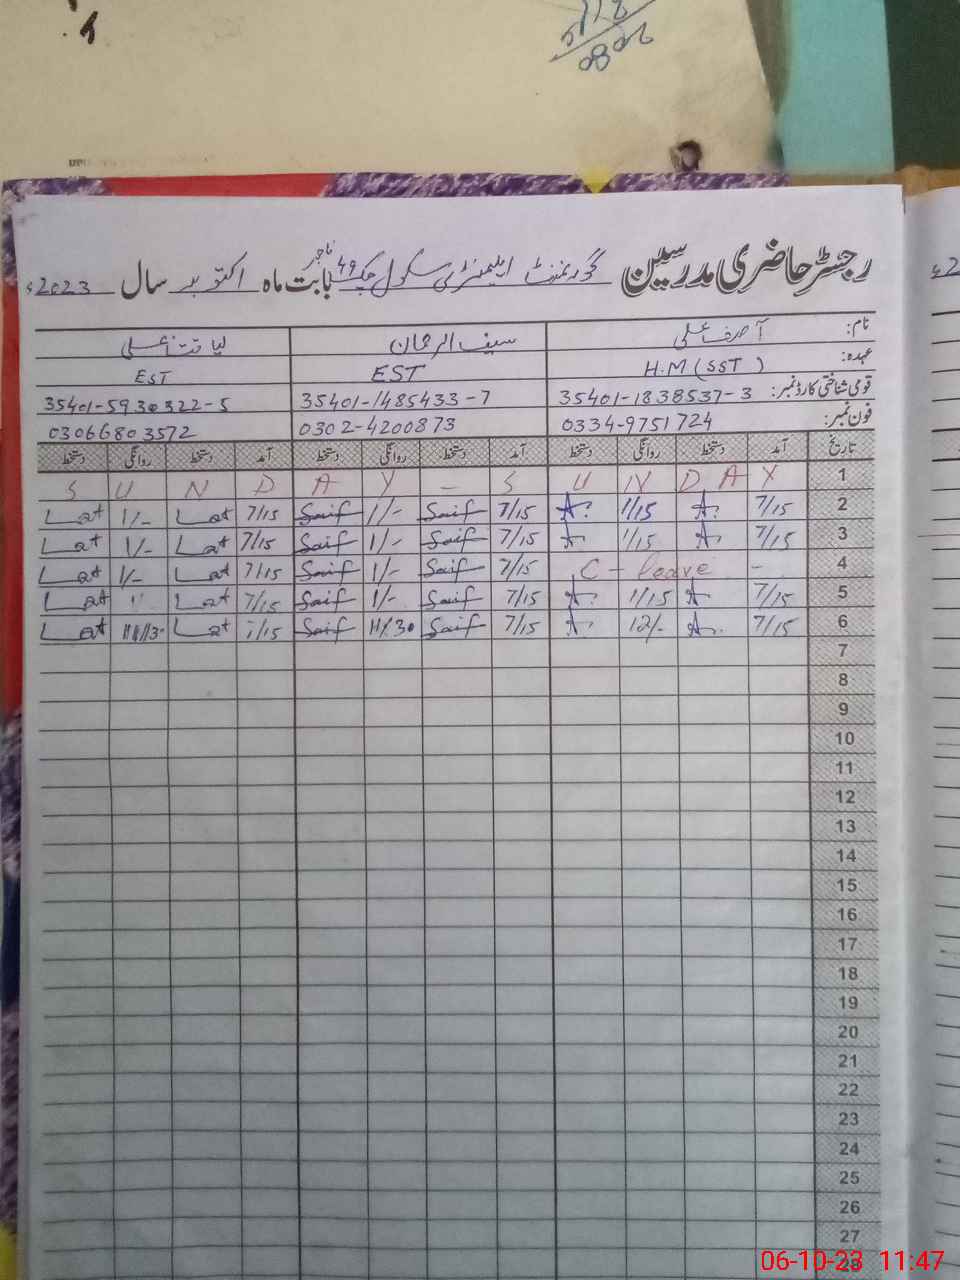 رجسٹر حاضری مدرسین گورنمنٹ ایلیمنٹری سکول چک 49 بابت ماہ اکتوبر سال 2023ء
نام: آصف علی سیف الرحمان لیاقت علی
عہدہ: H.M (SST) EST EST
قومی شناختی کارڈ نمبر: 35401-1838537-3 35401-1485433-7 35401-5930322-5
فون نمبر: 0334-9751724 0302-4200873 03066803572
تاریخ آمد دستخط روانگی دستخط آمد دستخط روانگی دستخط آمد دستخط روانگی دستخط
1 S U N D A Y - S U N D A Y
2 7/15 A. 1/15 A. 7/15 Saif 1/- Saif 7/15 Lat 1/- Lat
3 7/15 A. 1/15 A. 7/15 Saif 1/- Saif 7/15 Lat 1/- Lat
4 C - leave - 7/15 Saif 1/- Saif 7/15 Lat 1/- Lat
5 7/15 A. 1/15 A. 7/15 Saif 1/- Saif 7/15 Lat Lat
6 7/15 A. 12/- A. 7/15 Saif 11/30 Saif 7/15 Lat Lat
7
8
9
10
11
12
13
14
15
16
17
18
19
20
21
22
23
24
25
26
27
28
06-10-23 11:47